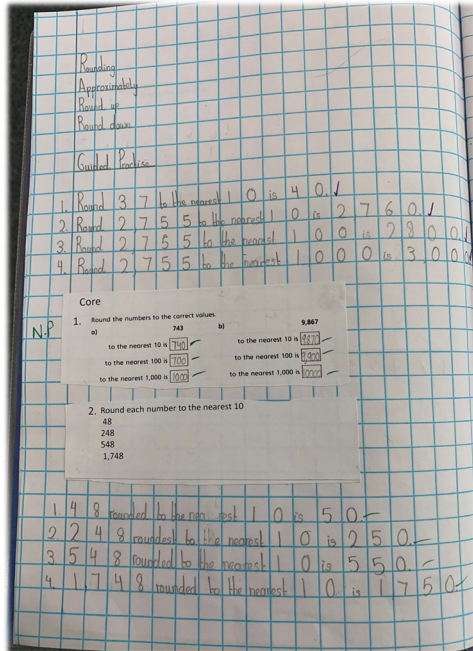 Rounding
Approximately
Round up
Round down
Guided Practise
1. Round 37 to the nearest 10 is 40.
2. Round 2,755 to the nearest 10 is 2760.
3. Round 2,755 to the nearest 100 is 2800.
4. Round 2,755 to the nearest 1,000 is 3,000
Core
N.P 1. Round the numbers to the correct values.
a) 743 b) 9,867
to the nearest 10 is 740 to the nearest 10 is 9870
to the nearest 100 is 700 to the nearest 100 is 9,900
to the nearest 1,000 is 1000 to the nearest 1,000 is 10000
2. Round each number to the nearest 10
48
248
548
1,748
1. 48 rounded to the nearest 10 is 50.
2 248 roundest to the nearest 10 is 250.
3. 548 rounded to the nearest 10 is 550.
4. 1,748 rounded to the nearest 10 is 1750